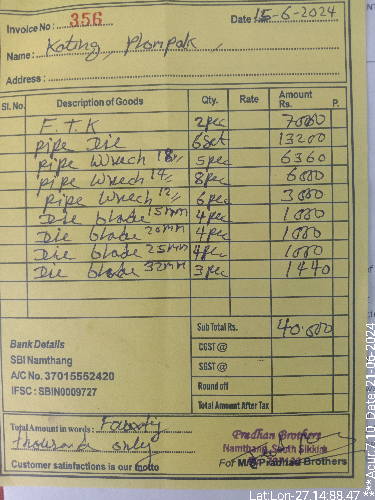 Invoice No : 356 Date : 15-6-2024
Name : Kating, Plompak,
Address :
Sl. No. Description of Goods Qty. Rate Amount Rs. P.
F. T. K 2pec 7000
pipe Die 6set 13200
pipe Wrech 18" 5pec 6360
pipe Wrech 14" 8pec 6000
pipe Wrech 12" 6pec 3000
Die blade 15mm 4pec 1000
Die blade 20mm 4pec 1000
Die blade 25mm 4pec 1000
Die blade 32mm 3pec 1440
Sub Total Rs. 40.000
Bank Details
CGST @
SBI Namthang
SGST @
A/C No. 37015552420
Round off
IFSC : SBIN0009727
Total Amount After Tax
Total Amount in words : Fourty
thousand only
Pradhan Brothers
Namthang, South Sikkim
Customer satisfactions is our motto
For M/S Pradhan Brothers
Lat:Lon-27.14:88.47
***Acu:7.10_Date:21-06-2024